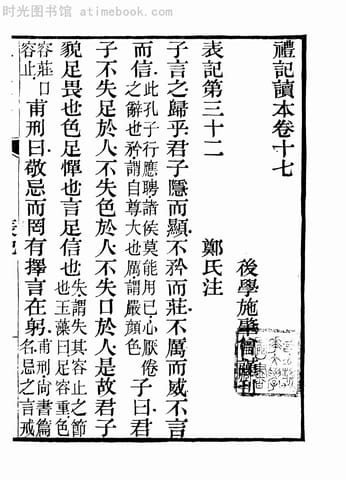 时光图书馆 - atimebook.com
禮記讀本卷十七
後學施肇曾刊
表記第三十二 鄭氏注
子言之歸乎君子隱而顯不矜而莊不厲而威不言
而信此孔子行應聘諸侯莫能用己心厭倦之辭也矜謂自尊大也厲謂嚴顏色子曰君
子不失足於人不失色於人不失口於人是故君子
貌足畏也色足憚也言足信也失謂失其容止之節也玉藻曰足容重色
容莊口容止甫刑曰敬忌而罔有擇言在躬甫刑尚書篇名忌之言戒